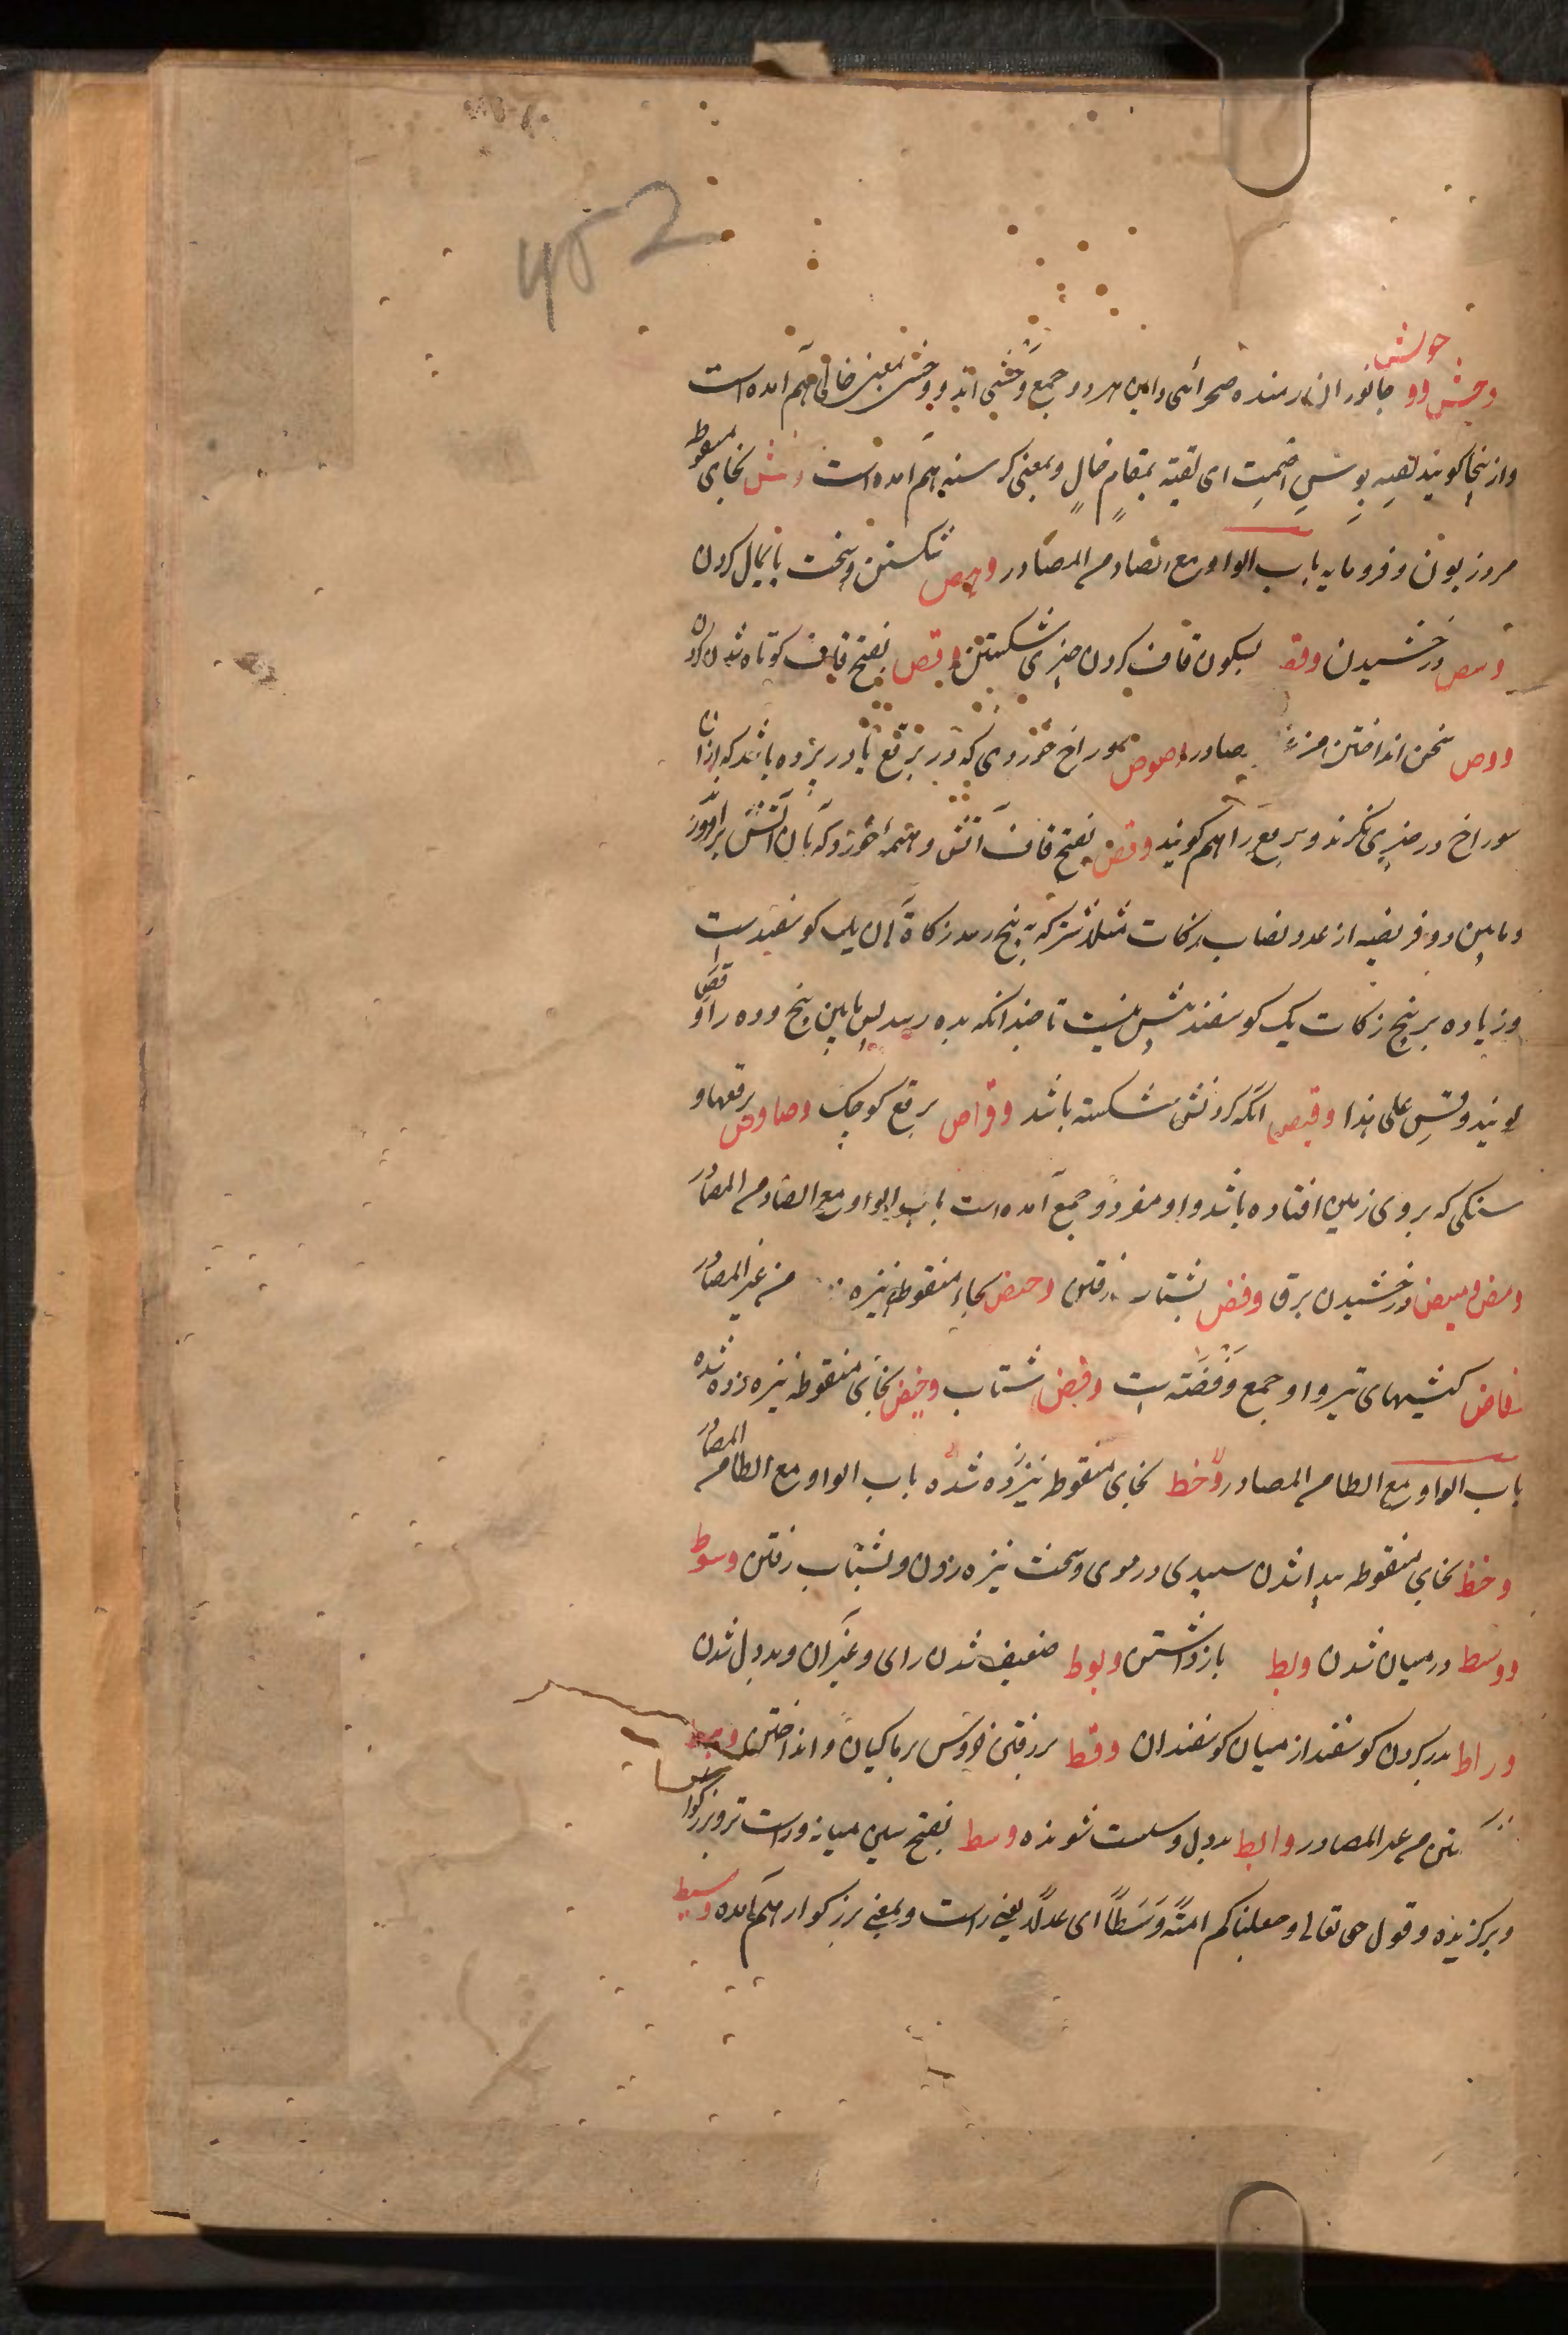 452
حوش
وحش وو جانوران رمنده صحرائی واین هردو جمع وحشی اند و وحش بمعنی خالی هم آمده است
واز ینجا کویند لقیته بوحش اصمت ای لقیته بمقام خالٍ وبمعنی کرسنه هم آمده است وخش بخای منقوطه
مرد زبون وفرومایه باب الواو مع الصاد من المصادر وهص شکستن وسخت پایمال کردن
وبیص درخشیدن وقص بسکون قاف کردن چیزی شکستن وقص بفتح قاف کوتاه شدن کردن
ووص سخن انداختن من غیر المصادر وصوص سوراخ خوردی که در برقع یا در پرده باشد که ازان
سوراخ در چیزی نکرند وبرقع را هم کویند وقص بفتح قاف آتش وهیمهٔ خورد که بآن آتش برافروزند
وما بین دو فریضه از عدد نصاب زکات مثلا شتر که به پنج رسد زکاة آن یک کوسفندست
وزیاده بر پنج زکات یک کوسفند بیش نیست تا چندانکه بده رسد پس مابین پنج وده را وقص
کویند وقس علی هذا وقیص آنکه کردنش شکسته باشد وصواص برقع کوچک وصاوص برقعها و
سنکی که بروی زمین افتاده باشد واو مفرد و جمع آمده است باب الواو مع الضاد من المصادر
ومض ومیض درخشیدن برق وفض بشتاب رفتن وخض بخاء منقوطه نیزه زدن من غیر المصادر
وفاض کیشهای تیر واو جمع وفضه است وفض شتاب وخیض بخای منقوطه نیزه زده شده
باب الواو مع الطا من المصادر وخط بخای منقوطه نیزه زده شده باب الواو مع الطا من المصادر
وخط بخای منقوطه پیدا شدن سپیدی در موی وسخت نیزه زدن وبشتاب رفتن وسوط
ووسط درمیان شدن وبط بازداشتن وبوط ضعیف شدن رای وغیر آن وبددل شدن
وراط بدر کردن کوسفند از میان کوسفندان وقط بر رفتن خروس بر ماکیان و انداختن
من غیر المصادر وابط بددل وسست شونده وسط بفتح سین میانه وراست تر وبزرکوار
وبرکزیده وقول حق تعالی وجعلناکم امةً وَسَطاً ای عدلاً یعنی راست وبمعنی بزرکوار هم آمده وسیط